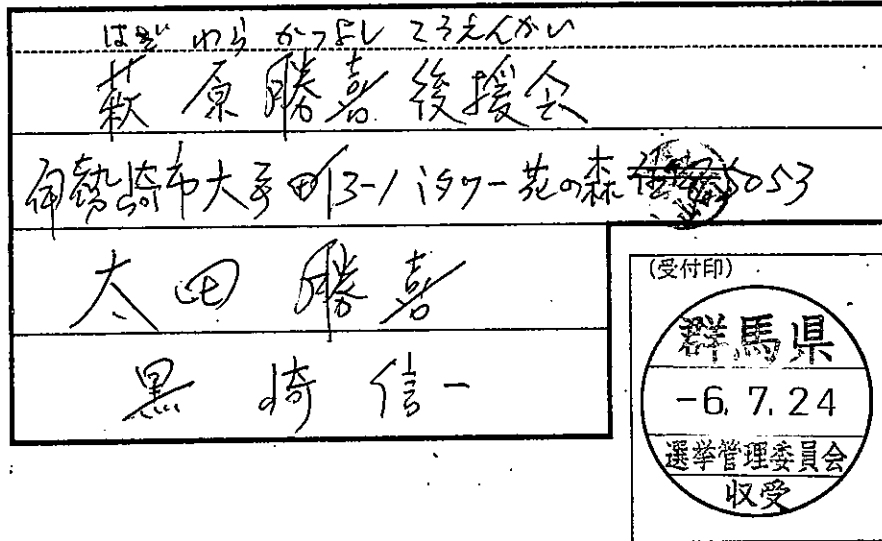 はぎわら かつよし こうえんかい
萩原勝喜後援会
伊勢崎市大手町13-1 タワー花の森 5053
太田勝喜
黒崎信一
(受付印)
群馬県
-6.7.24
選挙管理委員会
収受